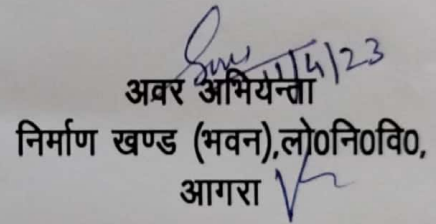 1/4/23
अवर अभियन्ता
निर्माण खण्ड (भवन),लो0नि0वि0,
आगरा